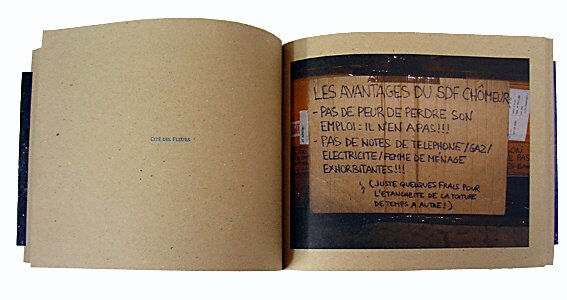 CITÉ DES FLEURS
LES AVANTAGES DU SDF CHÔMEUR
- PAS DE PEUR DE PERDRE SON
EMPLOI : IL N'EN A PAS!!!
- PAS DE NOTES DE TELEPHONE/GAZ/
ELECTRICITE/FEMME DE MENAGE
EXHORBITANTES!!!
(JUSTE QUELQUES FRAIS POUR
L'ETANCHEITE DE LA TOITURE
DE TEMPS A AUTRE!)